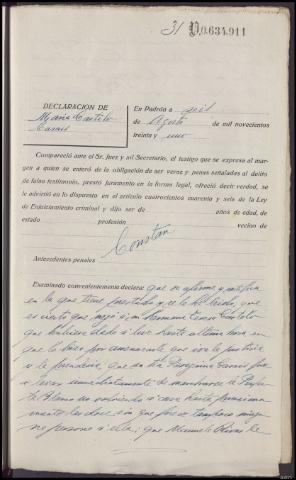 31 0.634,911
DECLARACION DE
Maria Castelo
Casais
En Padrón a seis
de Agosto de mil novecientos
treinta y uno
Compareció ante el Sr. Juez y mí Secretario, el testigo que se expresa al mar-
gen a quien se enteró de la obligación de ser veraz y penas señaladas al delito
de falso testimonio, prestó juramento en la forma legal, ofreció decir verdad, se
le advirtió en lo dispuesto en el artículo cuatrocientos cuarenta y seis de la Ley
de Enjuiciamiento criminal y dijo ser de años de edad, de
estado profesión vecino de
Constan
Antecedentes penales
Examinado convenientemente declara: que se afirma y ratifica
en la que tiene prestada y se le ha leido, que
es cierto que negó a su hermana
que hubiese dado a luz hasta última hora en
que lo hizo por que iba la justicia
a le que su tia Peregrina Casais fue
a inmediatamente de
no volviendo a casa hasta
las doce sin que fuese tampoco ningu-
na persona a ella; que Manuela Rivas le